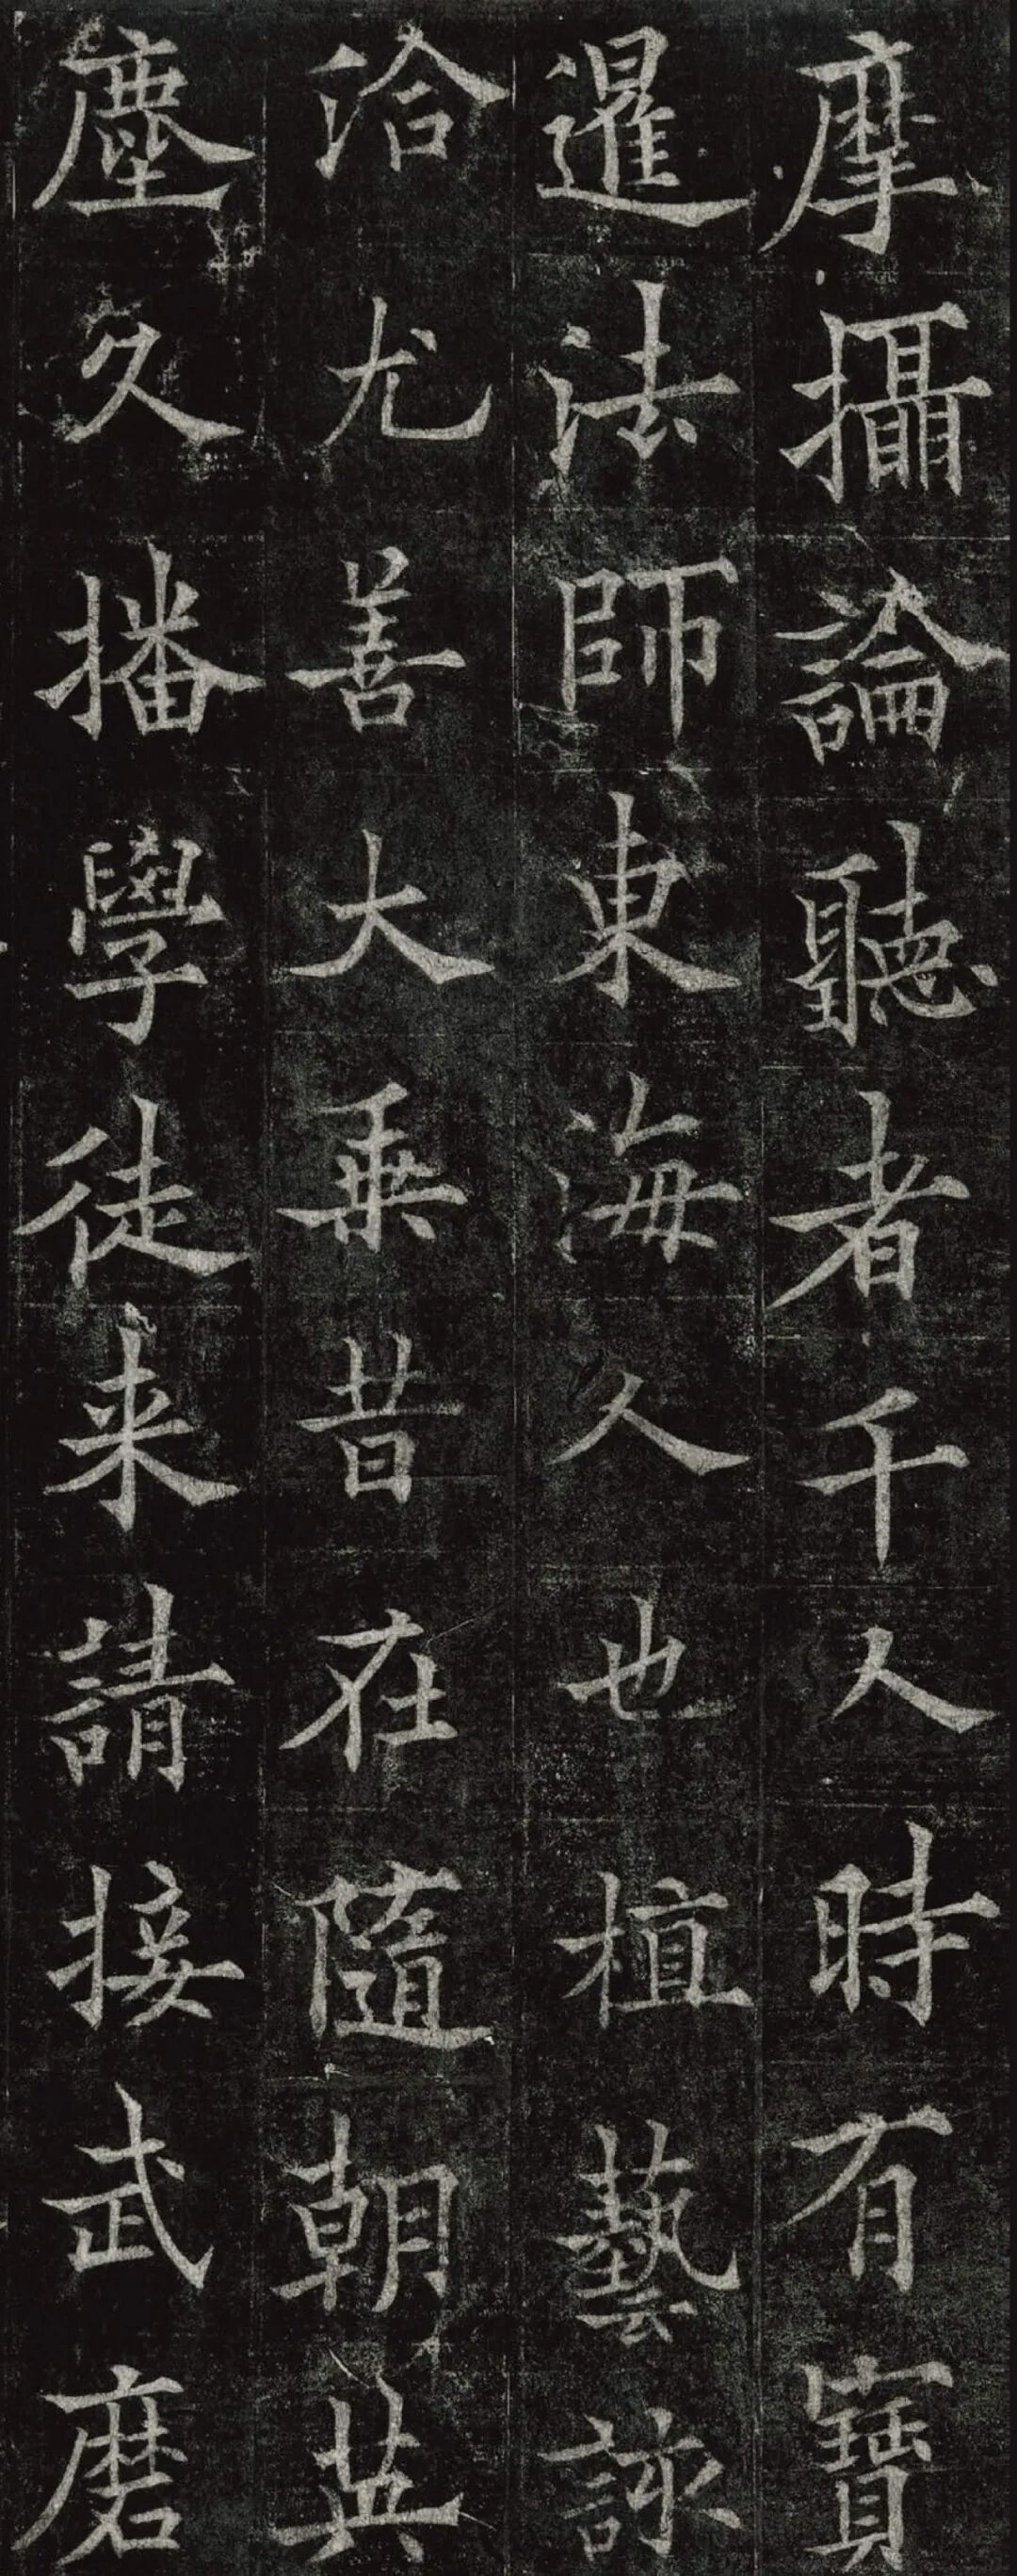 摩攝論聽者千人時有寶
暹法師東海人也植藝詠
洽尤善大乘昔在隨朝英
塵久播學徒来請接武磨